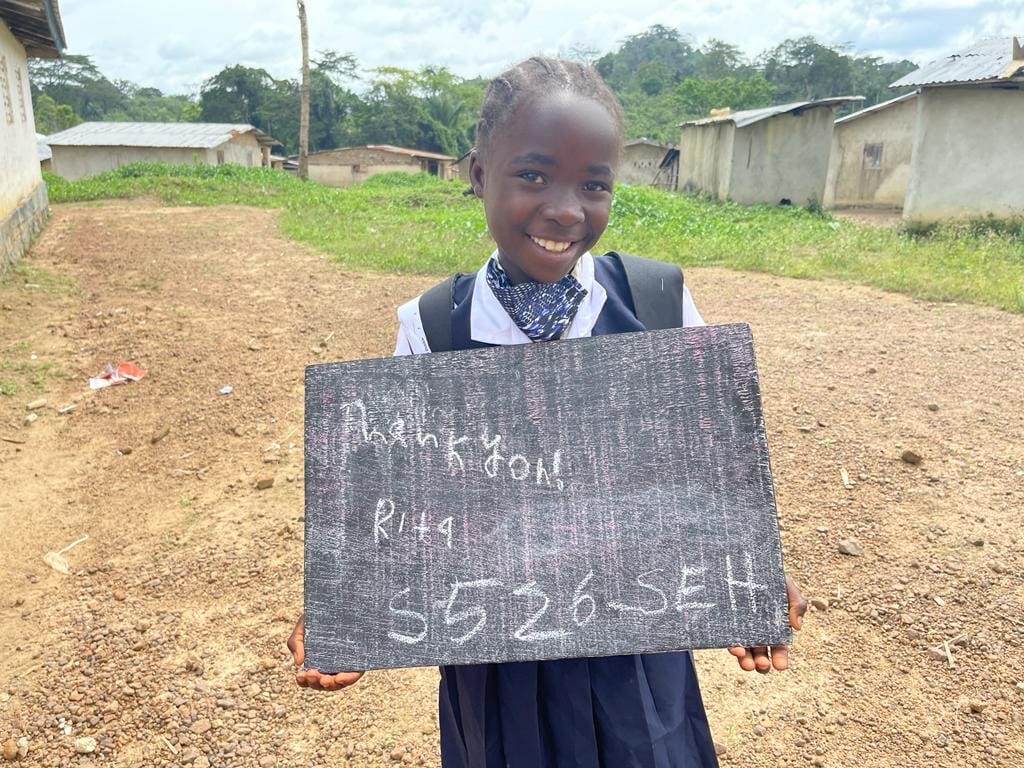 Thank you!
Rita
S526SEH